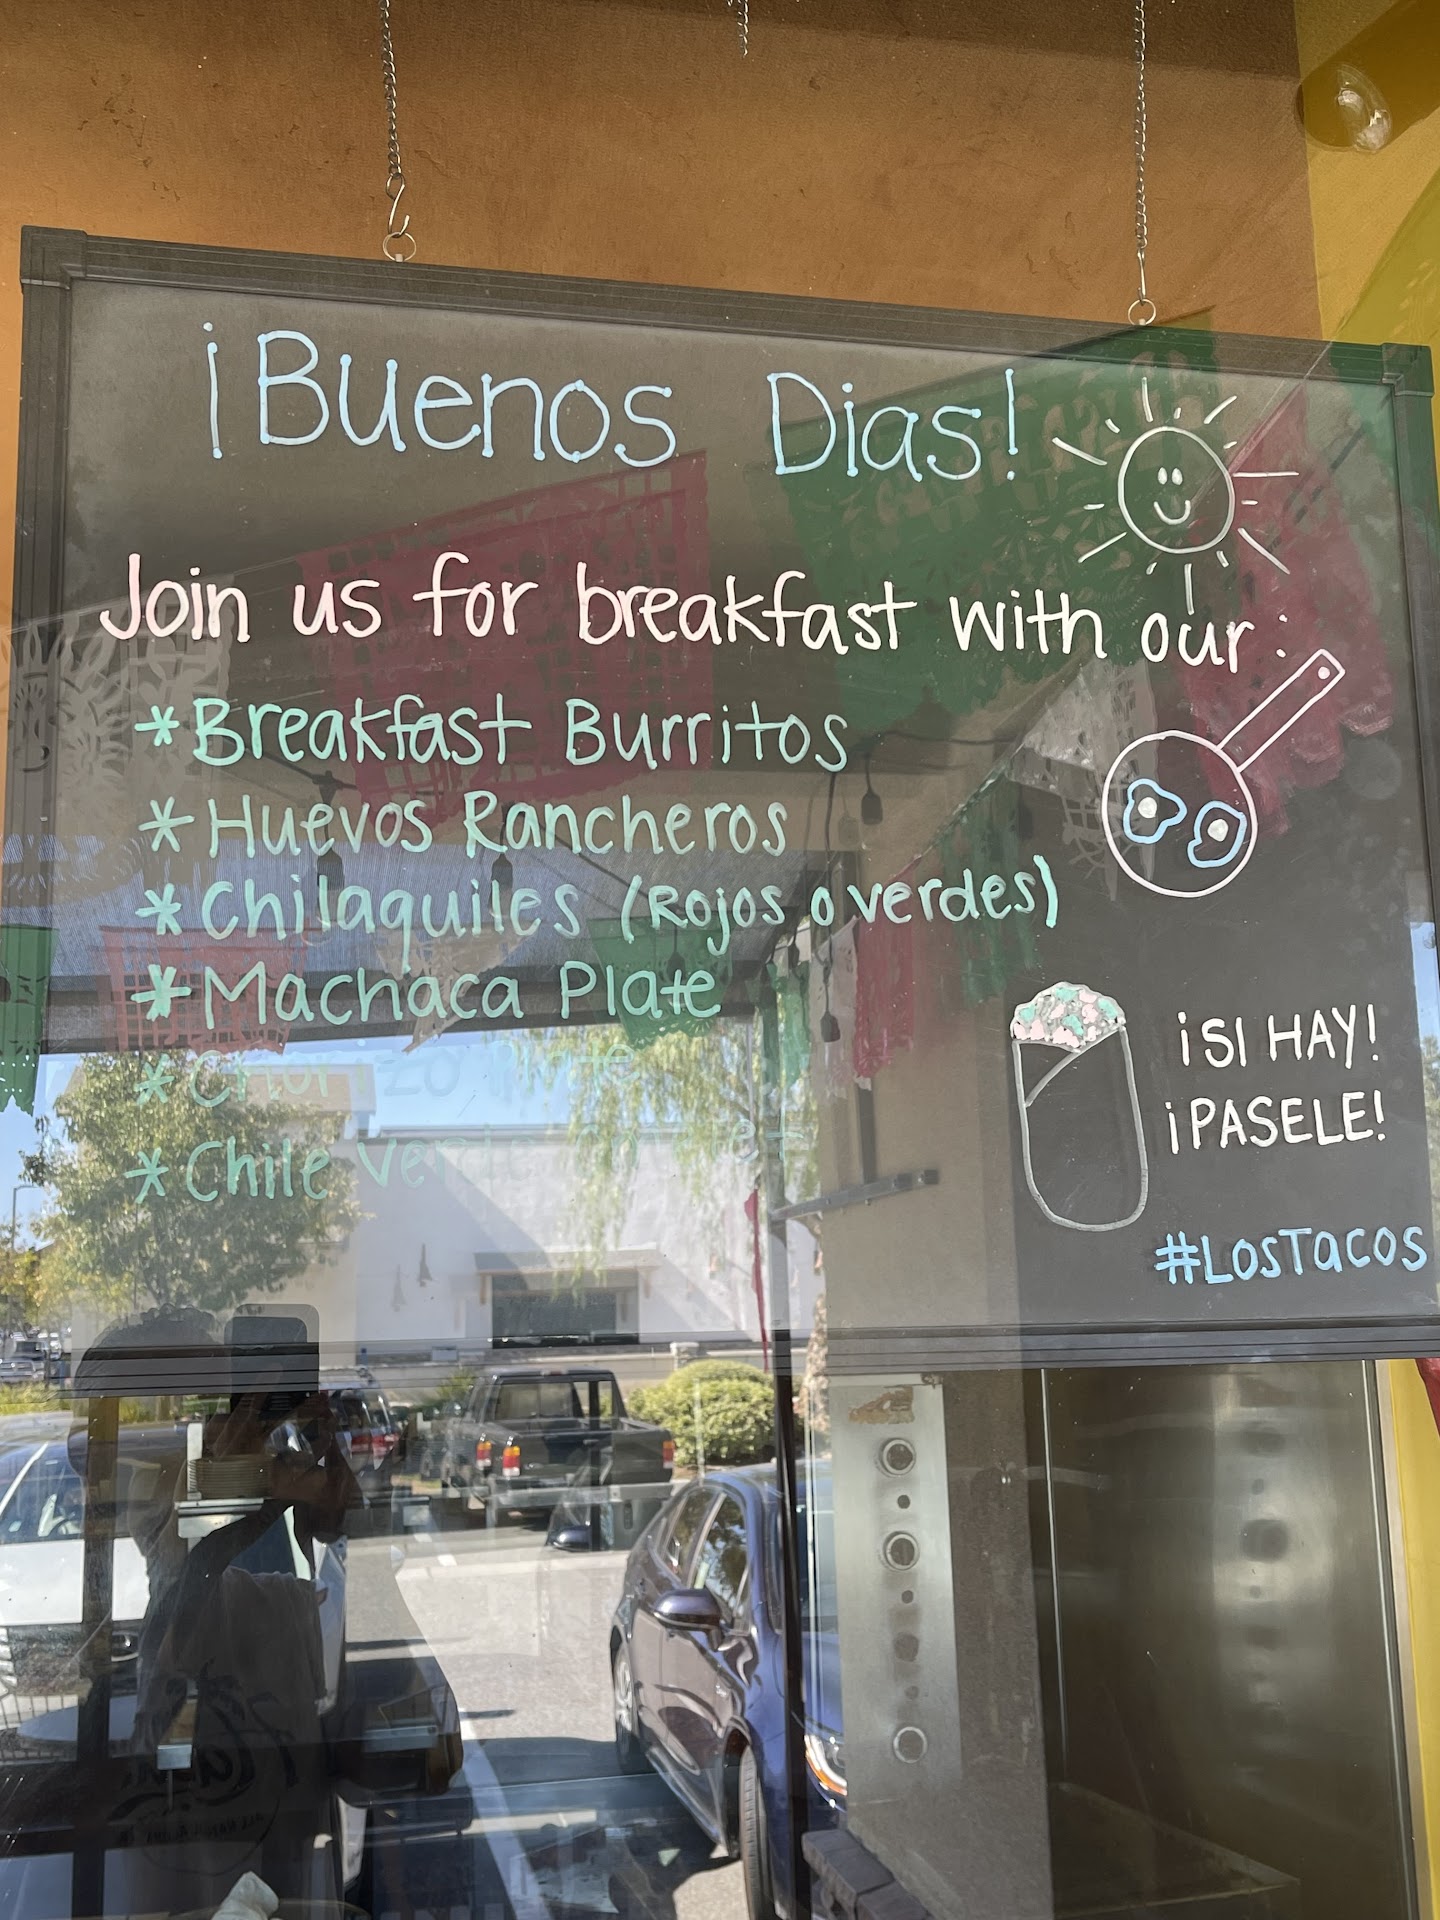 ¡Buenos Dias!
Join us for breakfast with our:
*Breakfast Burritos
*Huevos Rancheros
*Chilaquiles (Rojos o verdes)
*Machaca Plate
*Chorizo Plate
*Chile Verde
¡SI HAY!
¡PASELE!
#LosTacos